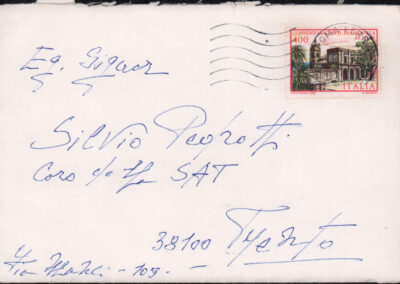 400
ITALIA
Eg. Signor
Silvio Pedrotti
Coro della SAT
38100 Trento
Via - 109.